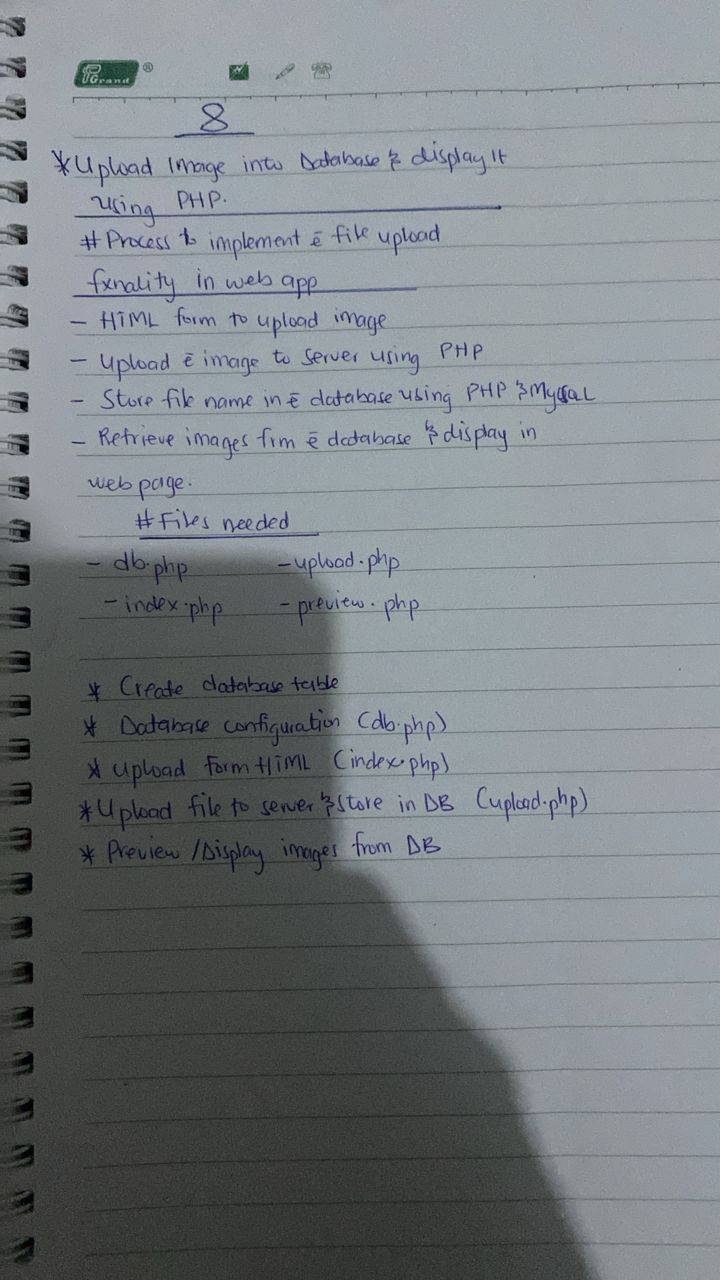 FGrand ®
8
* Upload Image into Database & display It
using PHP.
# Process to implement ē file upload
fxnality in web app
- HTML form to upload image
- Upload ē image to server using PHP
- Store file name in ē database using PHP & MySQL
- Retrieve images frm ē database & display in
web page.
# Files needed
- db.php - upload.php
- index.php - preview.php
* Create database table
* Database configuration (db.php)
* Upload form HTML (index.php)
* Upload file to server & store in DB (upload.php)
* Preview / Display images from DB